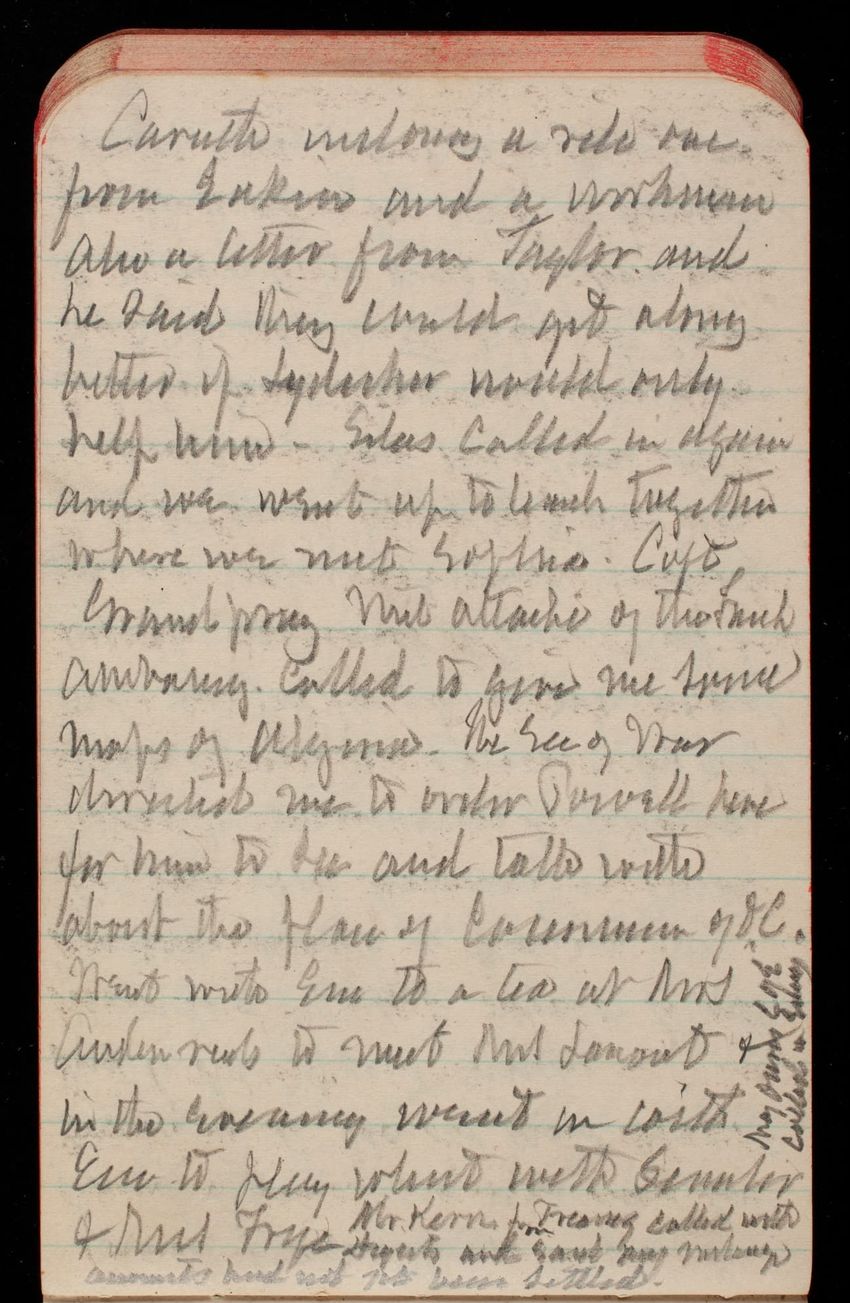 Caruth inclosing a rele one
from Eakin and a workman
also a letter from Taylor and
he said they could get along
better if Lydecker would only
help him - Silas called in again
and we went up to lunch together
where we met Sophia. Capt,
Grandprey Mil attache of the French
Embassy. Called to give me some
maps of Algeria. The Sec of War
directed me to order Powell here
for him to see and talk with
about the place of Commr of D.C.
Went with Em to a tea at Mrs
Audenreids to meet Mrs Lamont &
in the evening went in with
Em to play whist with Senator
& Mrs Frye Mr Kern from called with
and said my
amounts had not yet been settled.
called in